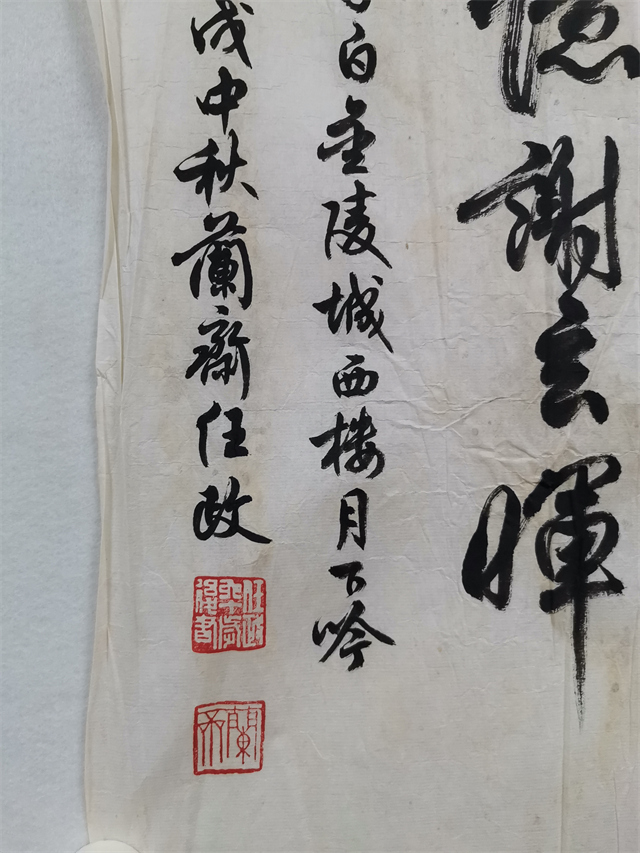 憶謝玄暉
白金陵城西楼月下吟
戌中秋蘭齋任政
任政
後書
蘭齋